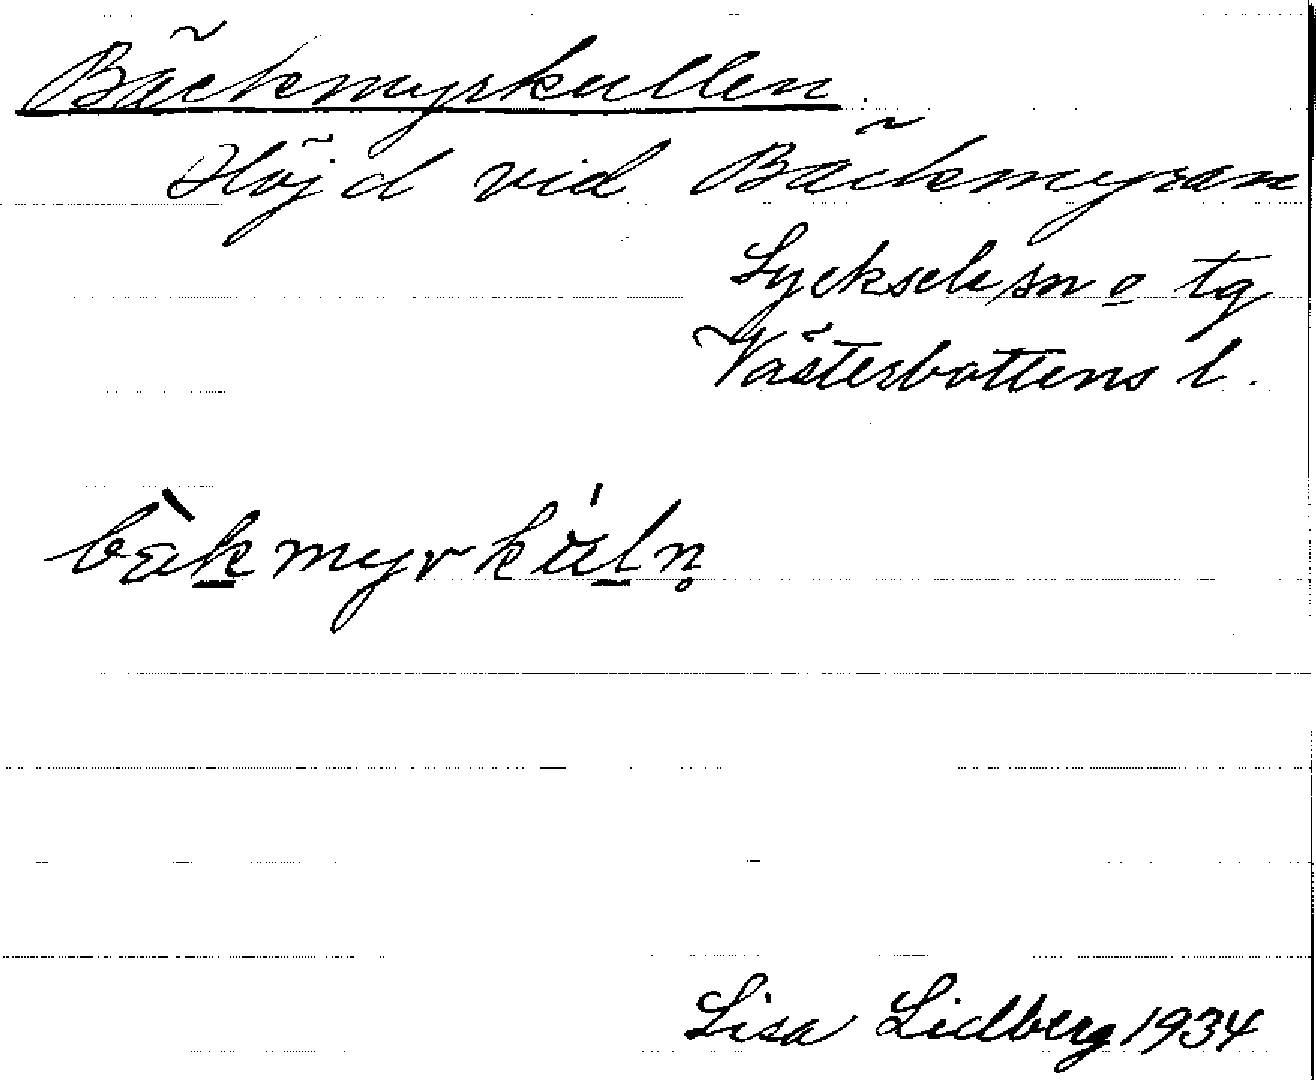 Bäckmyrkullen
Höjd vid Bäckmyran
Lycksele sn o tg
Västerbottens l.
bæ̀k̲myrkúl̲n̥
Lisa Lidberg 1934